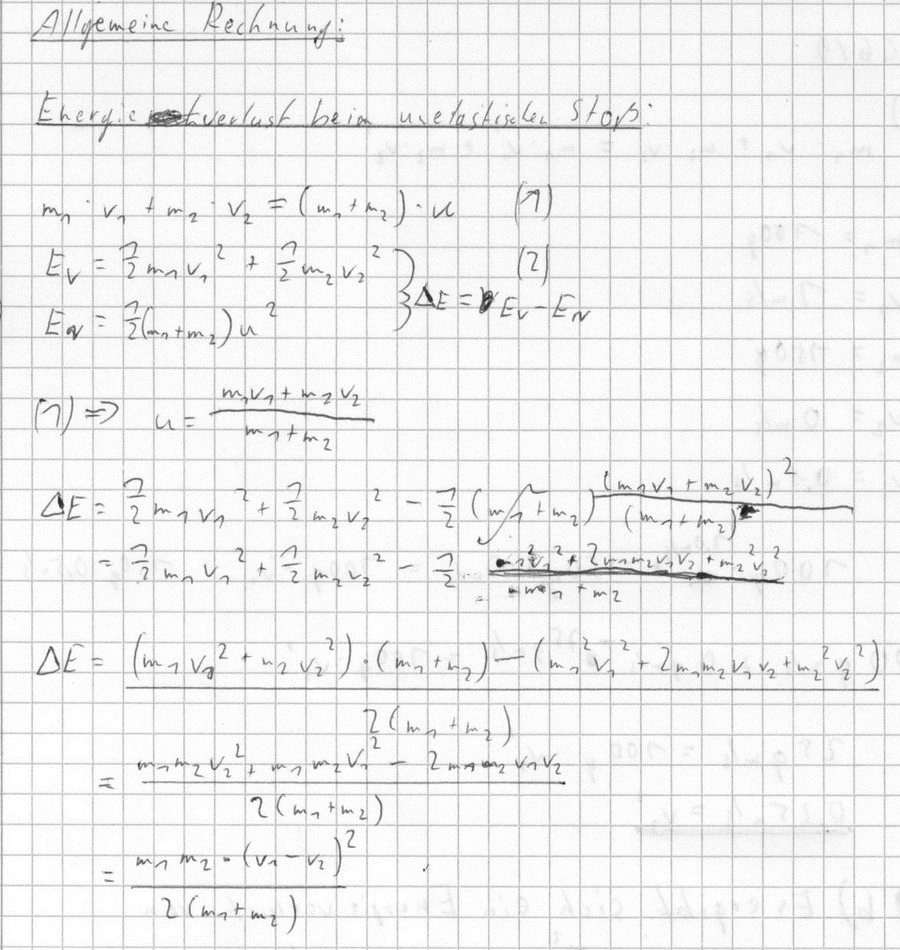 Allgemeine Rechnung:
Energieverlust beim unelastischen Stoß:
m₁ · v₁ + m₂ · v₂ = (m₁+m₂) · u (1)
E_V = 1/2 m₁v₁² + 1/2 m₂v₂² (2)
E_N = 1/2 (m₁+m₂) u² } ΔE = E_V − E_N
(1) ⇒ u = (m₁v₁ + m₂v₂) / (m₁+m₂)
ΔE = 1/2 m₁v₁² + 1/2 m₂v₂² − 1/2 (m₁+m₂) (m₁v₁ + m₂v₂)² / (m₁+m₂)
= 1/2 m₁v₁² + 1/2 m₂v₂² − 1/2 (m₁²v₁² + 2m₁m₂v₁v₂ + m₂²v₂²) / (m₁+m₂)
ΔE = ((m₁v₁² + m₂v₂²) · (m₁+m₂) − (m₁²v₁² + 2m₁m₂v₁v₂ + m₂²v₂²)) / 2(m₁+m₂)
= (m₁m₂v₂² + m₁m₂v₁² − 2m₁m₂v₁v₂) / 2(m₁+m₂)
= m₁m₂ · (v₁−v₂)² / 2(m₁+m₂)